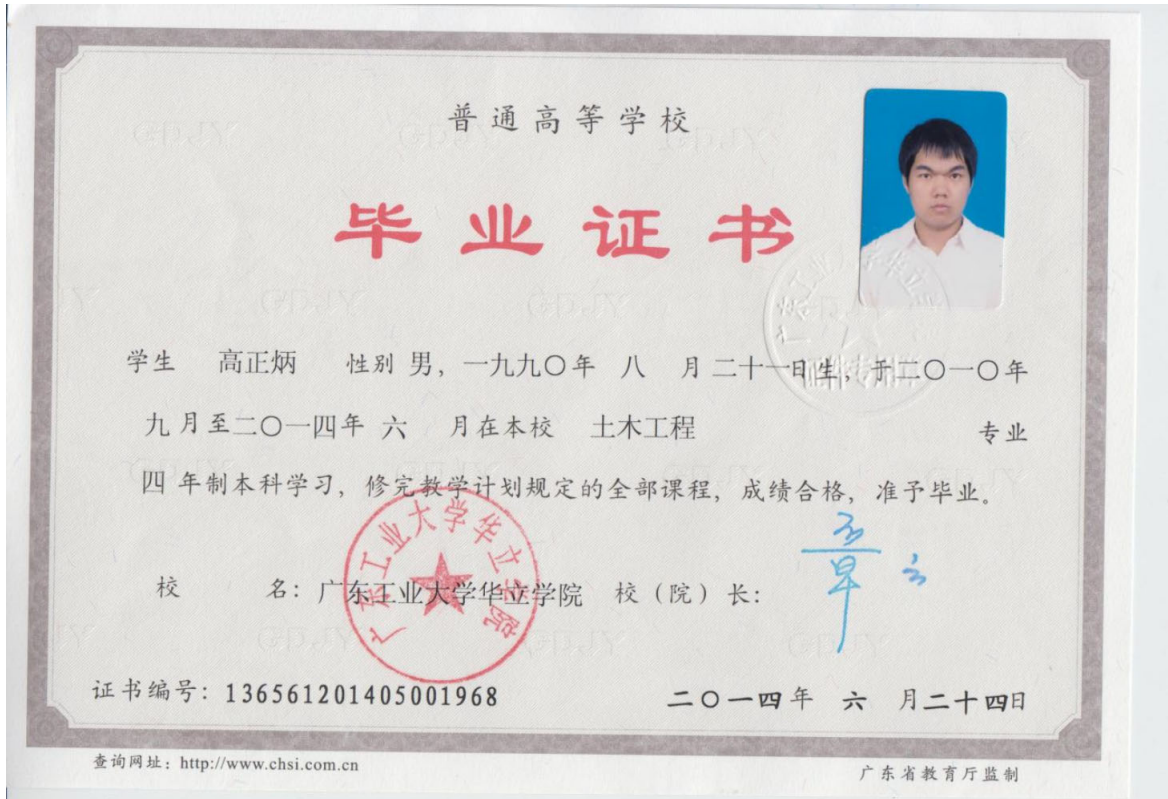 普通高等学校
毕业证书
学生 高正炳 性别 男，一九九〇年 八 月二十一日生，于二〇一〇年
九月至二〇一四年 六 月在本校 土木工程 专业
四 年制本科学习，修完教学计划规定的全部课程，成绩合格，准予毕业。
广东工业大学华立学院
校 名：广东工业大学华立学院 校（院）长：
证书编号：136561201405001968 二〇一四年 六 月二十四日
查询网址：http://www.chsi.com.cn 广东省教育厅监制